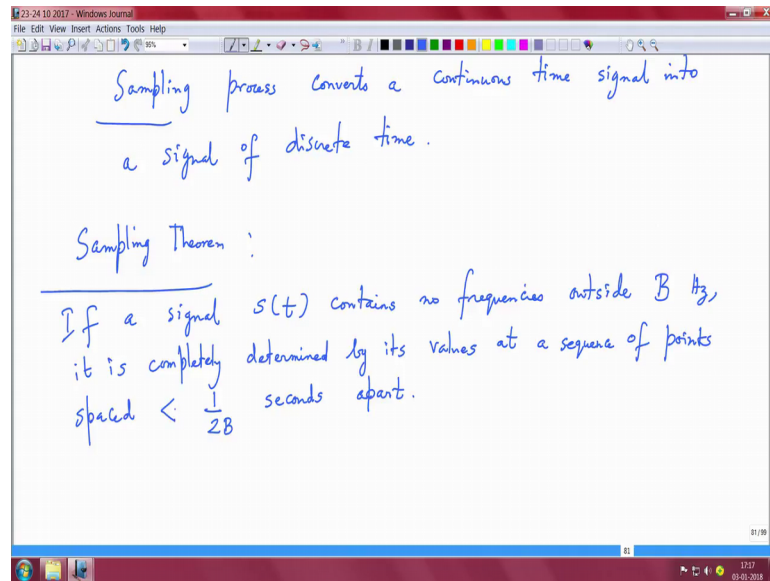 23-24 10 2017 - Windows Journal
File Edit View Insert Actions Tools Help
95%
B I
Sampling process converts a continuous time signal into
a signal of discrete time.
Sampling Theorem :
If a signal s(t) contains no frequencies outside B Hz,
it is completely determined by its values at a sequence of points
spaced < 1/2B seconds apart.
81/99
81
17:17
03-01-2018